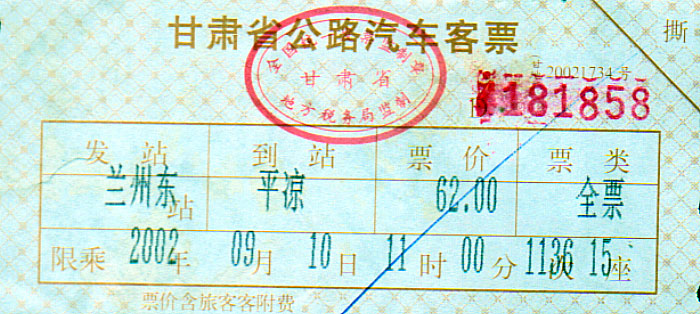 甘肃省公路汽车客票
撕
全国统一发票监制章
甘肃省
地方税务局监制
20021734号
181858
发站 到站 票价 票类
兰州东站 平凉 62.00 全票
限乘 2002年 09月 10日 11时 00分 1136次 15座
票价含旅客客附费